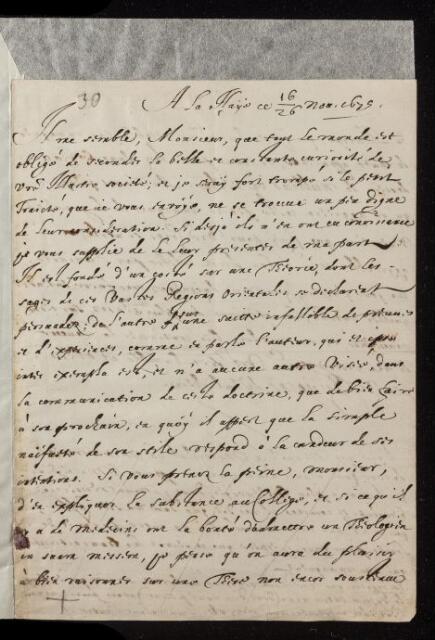 30
A la Haÿe ce 16/26 Nov. 1675.
Il me semble, Monsieur, que tout le monde est
obligé de seconder la belle et constante curiosité de
vre Illustre societé; et je seray fort trompé si le petit
Traicté, que ie vous envoye, ne se trouve un peu digne
de leur consideration. Si desjà ils n'en ont eu connoissance
je vous supplie de le leur presenter de ma part.
Il est fondé d'un costé sur une Theorie, dont les
sages de ces Vastes Regions Orientales se declarent
persuadez; de l'autre sur une suitte infallible de preuves
et d'experiences, comme en parle l'auteur, qui et ipse
inter exempla est, et n'a aucune autre visée, dans
la communication de ceste doctrine, que de bien faire
à son prochain, en quoÿ il appert que la simple
naifueté de son stile respond à la candeur de ses
intentions. Si vous prenez la peine, monsieur,
d'en expliquer la substance au College, et si ce qu'il
y a de medecins ont la bonté d'admettre un Theologien
in suam messem, je pense qu'on aura du plaisir
à bien raisonner sur une These non encor soustenue